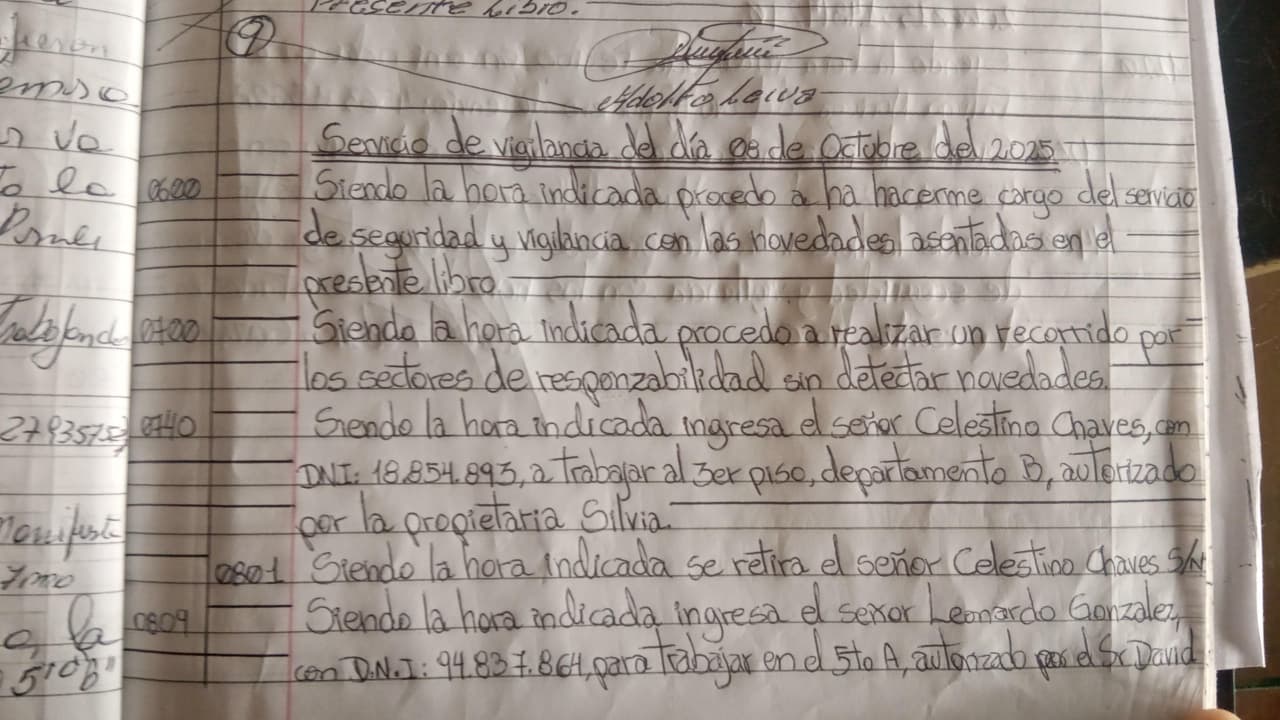 Presente Libro.
9
Adolfo Leiva
Servicio de vigilancia del día 08 de Octubre del 2025
0600 Siendo la hora indicada procedo a ha hacerme cargo del servicio
de seguridad y vigilancia con las novedades asentadas en el
presente libro
0700 Siendo la hora indicada procedo a realizar un recorrido por
los sectores de responzabilidad sin detectar novedades.
0740 Siendo la hora indicada ingresa el señor Celestino Chaves, con
DNI: 18.854.893, a trabajar al 3er piso, departamento B, autorizado
por la propietaria Silvia.
0801 Siendo la hora indicada se retira el señor Celestino Chaves S/N
0809 Siendo la hora indicada ingresa el señor Leonardo Gonzalez,
con D.N.I: 94.837.864, para trabajar en el 5to A, autorizado por el Sr David